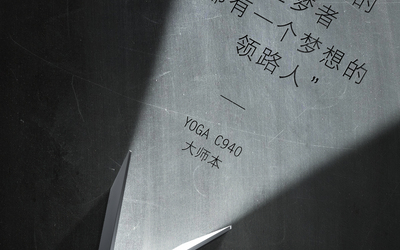 的
梦者
都有一个梦想的
领路人”
YOGA C940
大师本